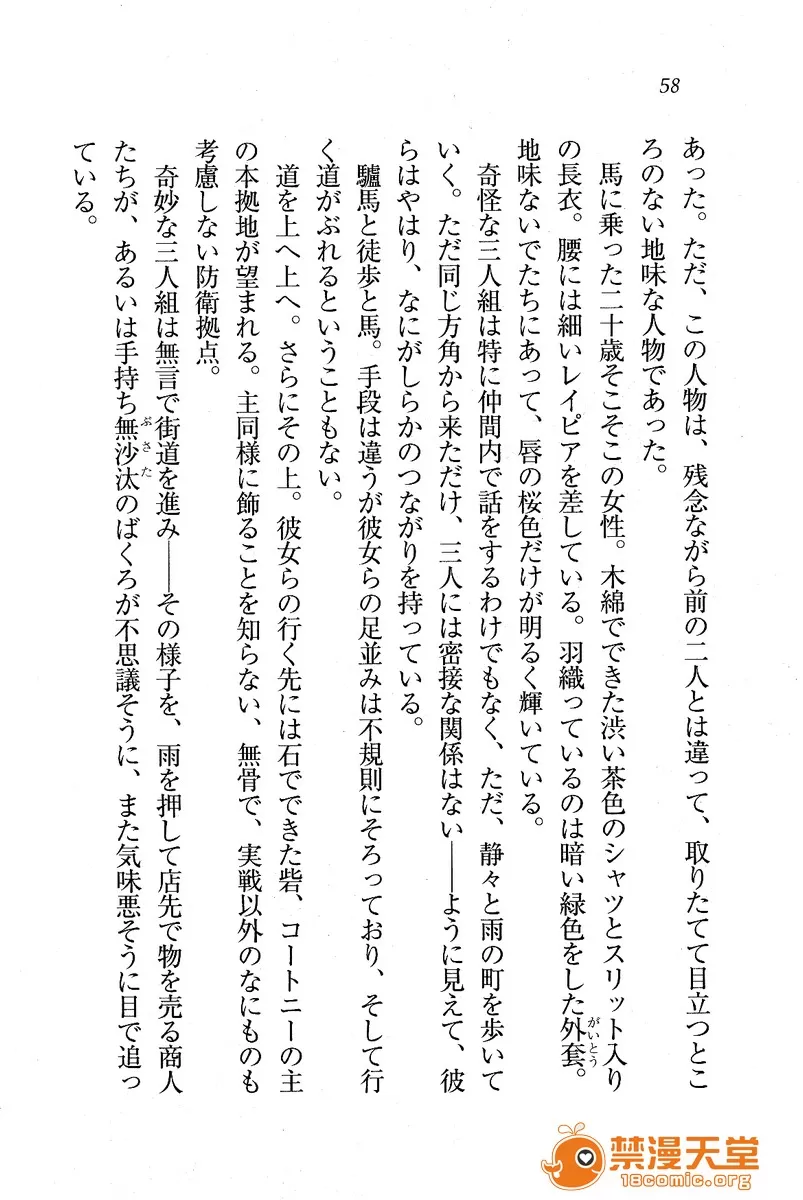 58
あった。ただ、この人物は、残念ながら前の二人とは違って、取りたてて目立つとこ
ろのない地味な人物であった。
馬に乗った二十歳そこそこの女性。木綿でできた渋い茶色のシャツとスリット入り
の長衣。腰には細いレイピアを差している。羽織っているのは暗い緑色をした外套。
がいとう
地味ないでたちにあって、唇の桜色だけが明るく輝いている。
奇怪な三人組は特に仲間内で話をするわけでもなく、ただ、静々と雨の町を歩いて
いく。ただ同じ方角から来ただけ、三人には密接な関係はない――ように見えて、彼
らはやはり、なにがしらかのつながりを持っている。
驢馬と徒歩と馬。手段は違うが彼女らの足並みは不規則にそろっており、そして行
く道がぶれるということもない。
道を上へ上へ。さらにその上。彼女らの行く先には石でできた砦、コートニーの主
の本拠地が望まれる。主同様に飾ることを知らない、無骨で、実戦以外のなにものも
考慮しない防衛拠点。
奇妙な三人組は無言で街道を進み――その様子を、雨を押して店先で物を売る商人
たちが、あるいは手持ち無沙汰のばくろが不思議そうに、また気味悪そうに目で追っ
ぶさた
ている。
禁漫天堂
18comic.org